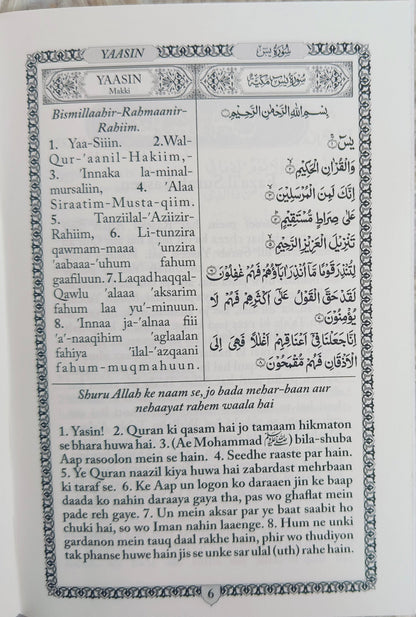 YAASIN
سُورَة يٰسٓ
YAASIN
Makki
سُورَة يٰسٓ مَكِّيَّة
Bismillaahir-Rahmaanir-
Rahiim.
1. Yaa-Siiin. 2.Wal-
Qur-'aanil-Hakiim,-
3. 'Innaka la-minal-
mursaliin, 4. 'Alaa
Siraatim-Musta-qiim.
5. Tanziilal-'Aziizir-
Rahiim, 6. Li-tunzira
qawmam-maaa 'unzira
'aabaaa-'uhum fahum
gaafiluun. 7. Laqad haqqal-
Qawlu 'alaaa 'aksarim
fahum laa yu'-minuun.
8. 'Innaa ja-'alnaa fiii
'a'-naaqihim 'aglaalan
fahiya 'ilal-'azqaani
fahum-muqmahuun.
بِسْمِ اللّٰهِ الرَّحْمٰنِ الرَّحِيْمِ
يٰسٓ ۱
وَالْقُرْاٰنِ الْحَكِيْمِ ۲
اِنَّكَ لَمِنَ الْمُرْسَلِيْنَ ۳
عَلٰى صِرَاطٍ مُّسْتَقِيْمٍ ۴
تَنْزِيْلَ الْعَزِيْزِ الرَّحِيْمِ ۵
لِتُنْذِرَ قَوْمًا مَّاۤ اُنْذِرَ اٰبَآؤُهُمْ فَهُمْ غٰفِلُوْنَ ۶
لَقَدْ حَقَّ الْقَوْلُ عَلٰۤى اَكْثَرِهِمْ فَهُمْ لَا
يُؤْمِنُوْنَ ۷
اِنَّا جَعَلْنَا فِيْۤ اَعْنَاقِهِمْ اَغْلٰلًا فَهِيَ اِلَى
الْاَذْقَانِ فَهُمْ مُّقْمَحُوْنَ ۸
Shuru Allah ke naam se, jo bada mehar-baan aur
nehaayat rahem waala hai
1. Yasin! 2. Quran ki qasam hai jo tamaam hikmaton
se bhara huwa hai. 3. (Ae Mohammad ﷺ) bila-shuba
Aap rasoolon mein se hain. 4. Seedhe raaste par hain.
5. Ye Quran naazil kiya huwa hai zabardast mehrbaan
ki taraf se. 6. Ke Aap un logon ko daraaen jin ke baap
daada ko nahin daraaya gaya tha, pas wo ghaflat mein
pade reh gaye. 7. Un mein aksar par ye baat saabit ho
chuki hai, so wo Iman nahin laaenge. 8. Hum ne unki
gardanon mein tauq daal rakhe hain, phir wo thudiyon
tak phanse huwe hain jis se unke sar ulal (uth) rahe hain.
6